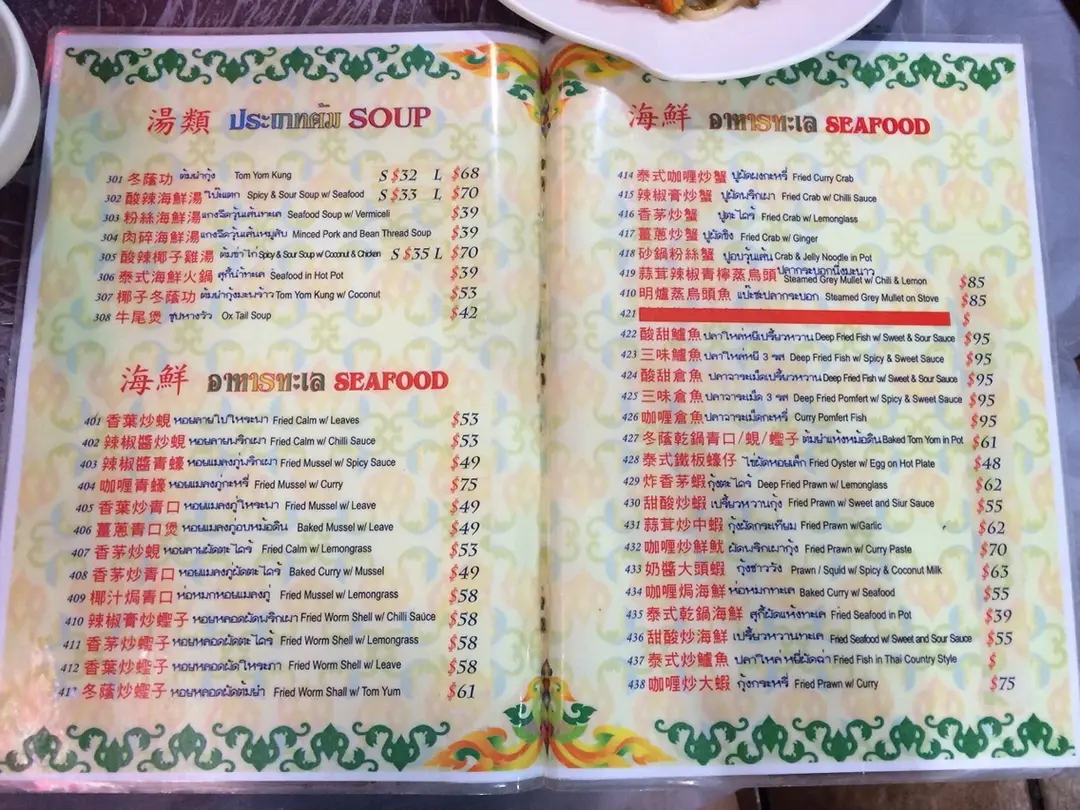 湯類 ประเภทต้ม SOUP
301 冬蔭功 ต้มยำกุ้ง Tom Yom Kung S $32 L $68
302 酸辣海鮮湯 โป๊ะแตก Spicy & Sour Soup w/ Seafood S $33 L $70
303 粉絲海鮮湯 แกงจืดวุ้นเส้นทะเล Seafood Soup w/ Vermiceli $39
304 肉碎海鮮湯 แกงจืดวุ้นเส้นหมูสับ Minced Pork and Bean Thread Soup $39
305 酸辣椰子雞湯 ต้มข่าไก่ Spicy & Sour Soup w/ Coconut & Chicken S $35 L $70
306 泰式海鮮火鍋 สุกี้น้ำทะเล Seafood in Hot Pot $39
307 椰子冬蔭功 ต้มยำกุ้งมะพร้าว Tom Yom Kung w/ Coconut $53
308 牛尾煲 ซุปหางวัว Ox Tail Soup $42
海鮮 อาหารทะเล SEAFOOD
401 香葉炒蜆 หอยลายใบโหระพา Fried Calm w/ Leaves $53
402 辣椒醬炒蜆 หอยลายพริกเผา Fried Calm w/ Chilli Sauce $53
403 辣椒醬青蠔 หอยแมลงภู่พริกเผา Fried Mussel w/ Spicy Sauce $49
404 咖喱青蠔 หอยแมลงภู่กะหรี่ Fried Mussel w/ Curry $75
405 香葉炒青口 หอยแมลงภู่โหระพา Fried Mussel w/ Leave $49
406 薑蔥青口煲 หอยแมลงภู่อบหม้อดิน Baked Mussel w/ Leave $49
407 香茅炒蜆 หอยลายผัดตะไคร้ Fried Calm w/ Lemongrass $53
408 香茅炒青口 หอยแมลงภู่ผัดตะไคร้ Baked Curry w/ Mussel $49
409 椰汁焗青口 ห่อหมกหอยแมลงภู่ Fried Mussel w/ Lemongrass $58
410 辣椒膏炒蟶子 หอยหลอดผัดพริกเผา Fried Worm Shell w/ Chilli Sauce $58
411 香茅炒蟶子 หอยหลอดผัดตะไคร้ Fried Worm Shell w/ Lemongrass $58
412 香葉炒蟶子 หอยหลอดผัดโหระภา Fried Worm Shell w/ Leave $58
冬蔭炒蟶子 หอยหลอดผัดต้มยำ Fried Worm Shall w/ Tom Yum $61
海鮮 อาหารทะเล SEAFOOD
414 泰式咖喱炒蟹 ปูผัดผงกะหรี่ Fried Curry Crab
415 辣椒膏炒蟹 ปูผัดพริกเผา Fried Crab w/ Chilli Sauce
416 香茅炒蟹 ปูตะไคร้ Fried Crab w/ Lemonglass
417 薑蔥炒蟹 ปูผัดขิง Fried Crab w/ Ginger
418 砂鍋粉絲蟹 ปูอบวุ้นเส้น Crab & Jelly Noodle in Pot
419 蒜茸辣椒青檸蒸烏頭 ปลากระบอกนึ่งมะนาว Steamed Grey Mullet w/ Chili & Lemon $85
410 明爐蒸烏頭魚 แป๊ะซะปลากระบอก Steamed Grey Mullet on Stove $85
421 $
422 酸甜鱸魚 ปลาใหล่หยีเปรี้ยวหวาน Deep Fried Fish w/ Sweet & Sour Sauce $95
423 三味鱸魚 ปลาใหล่หยี 3 รส Deep Fried Fish w/ Spicy & Sweet Sauce $95
424 酸甜倉魚 ปลาจาระเม็ดเปรี้ยวหวาน Deep Fried Fish w/ Sweet & Sour Sauce $95
425 三味倉魚 ปลาจาระเม็ด 3 รส Deep Fried Pomfert w/ Spicy & Sweet Sauce $95
426 咖喱倉魚 ปลาจาระเม็ดกะหรี่ Curry Pomfert Fish $95
427 冬蔭乾鍋青口/蜆/蟶子 ต้มยำแห้งหม้อดิน Baked Tom Yom in Pot $61
428 泰式鐵板蠔仔 ไข่ผัดหอยเค็ก Fried Oyster w/ Egg on Hot Plate $48
429 炸香茅蝦 กุ้งตะไคร้ Deep Fried Prawn w/ Lemonglass $62
430 甜酸炒蝦 เปรี้ยวหวานกุ้ง Fried Prawn w/ Sweet and Siur Sauce $55
431 蒜茸炒中蝦 กุ้งผัดกระเทียม Fried Prawn w/Garlic $62
432 咖喱炒鮮魷 ผัดพริกเผากุ้ง Fried Prawn w/ Curry Paste $70
433 奶醬大頭蝦 กุ้งชาววัง Prawn / Squid w/ Spicy & Coconut Milk $63
434 咖喱焗海鮮 ห่อหมกทะเล Baked Curry w/ Seafood $55
435 泰式乾鍋海鮮 สุกี้ผัดแห้งทะเล Fried Seafood in Pot $39
436 甜酸炒海鮮 เปรี้ยวหวานทะเล Fried Seafood w/ Sweet and Sour Sauce $55
437 泰式炒鱸魚 ปลาใหล่หยีผัดฉ่า Fried Fish in Thai Country Style $
438 咖喱炒大蝦 กุ้งกระหรี่ Fried Prawn w/ Curry $75